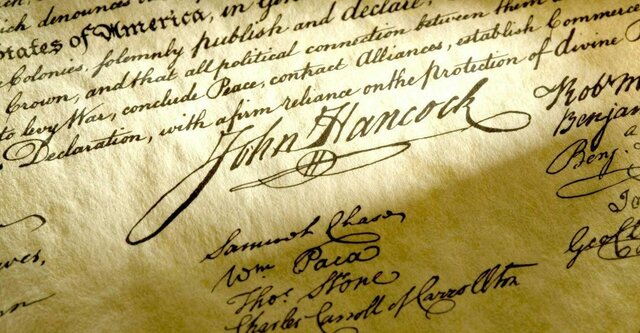 denounces
States of America, in Gen
Colonies, solemnly publish and declare,
Crown, and that all political connection between them a
to levy War, conclude Peace, contract Alliances, establish Commerc
Declaration, with a firm reliance on the protection of divine P
John Hancock
Robt M
Benja
Benj.
Ja
Geo. Cl
Samuel Chase
Wm. Paca
Thos. Stone
Charles Carroll of Carrollton